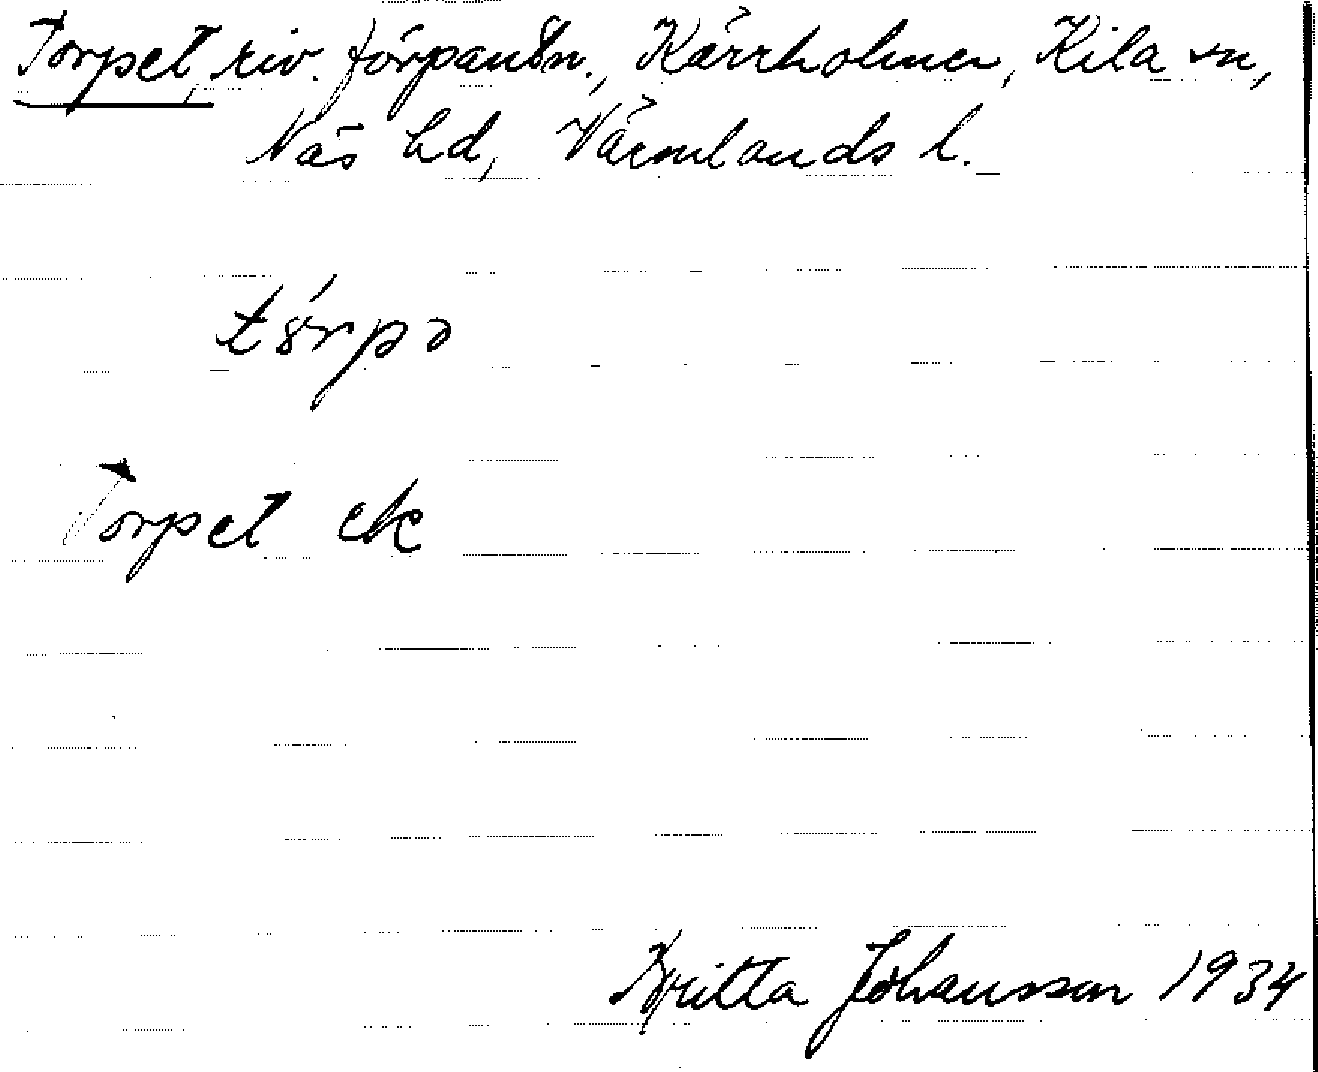 Torpet, riv. förpantn., Kärrholmen, Kila sn,
Näs hd, Värmlands l.
tórpə
Torpet ek
Britta Johansson 1934